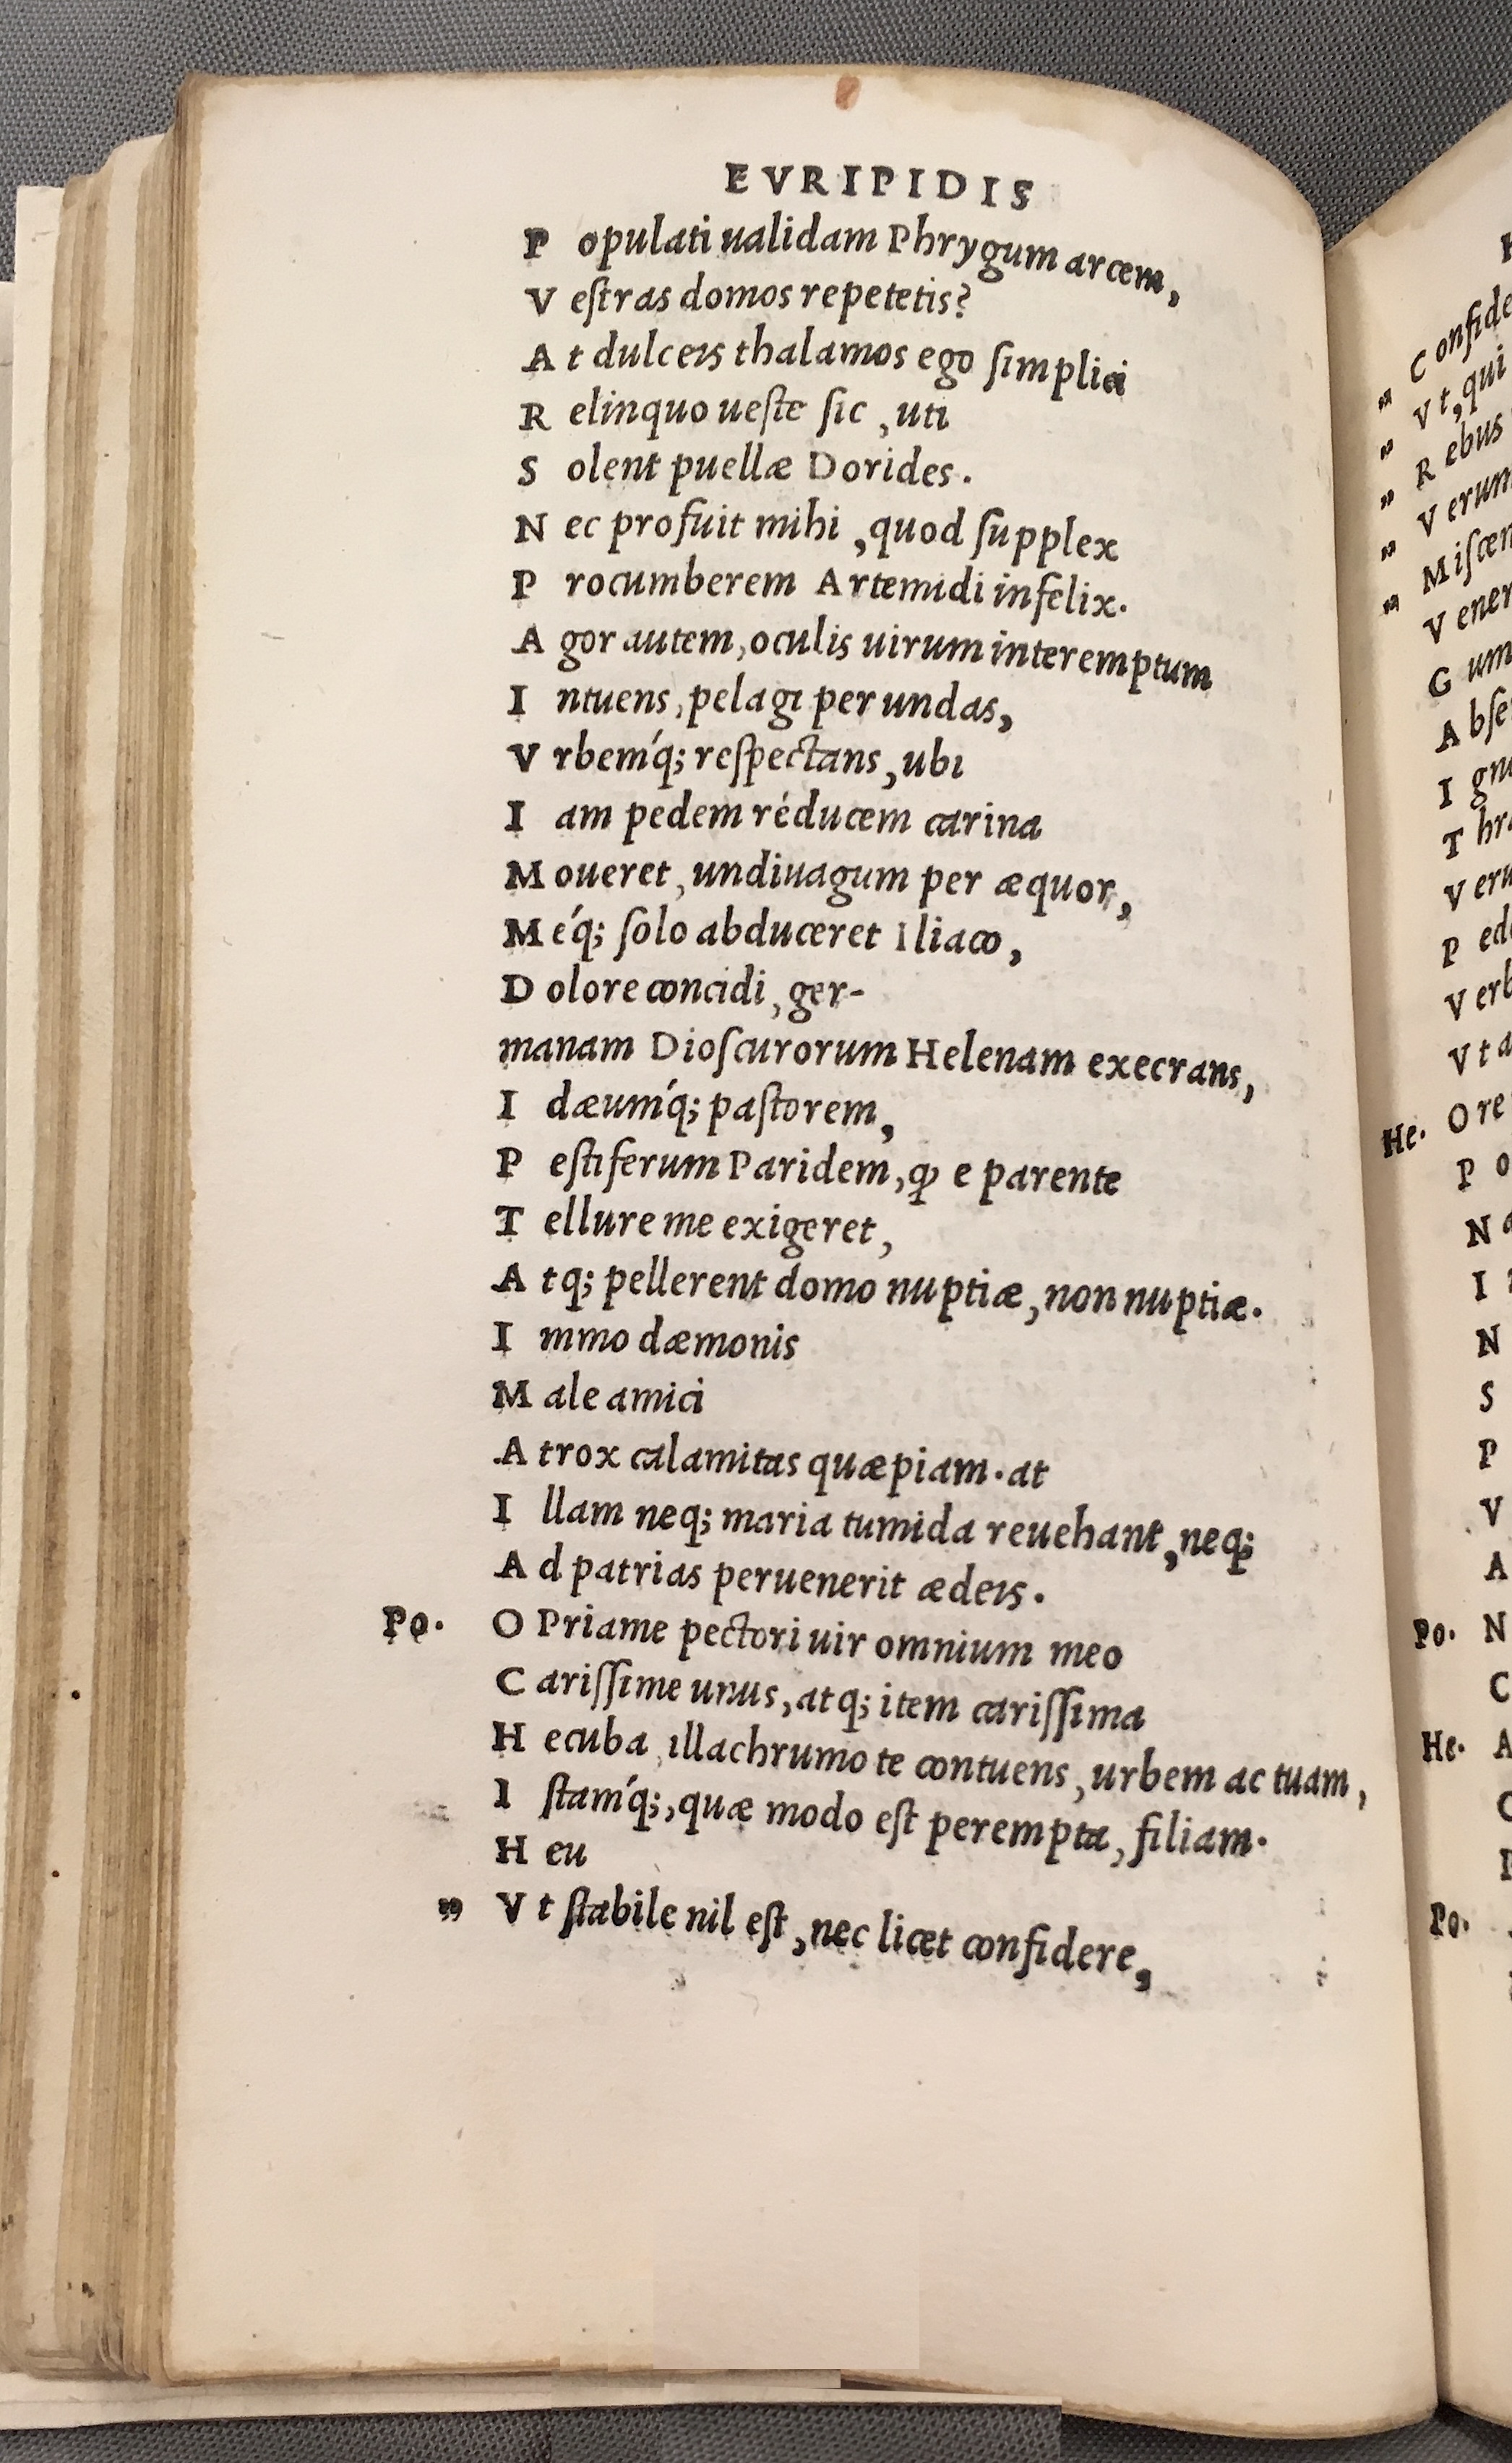 EVRIPIDIS
P opulati ualidam Phrygum arcem,
V eſtras domos repetetis?
A t dulceis thalamos ego ſimplici
R elinquo ueſte ſic, uti
S olent puellæ Dorides.
N ec profuit mihi, quod ſupplex
P rocumberem Artemidi infelix.
A gor autem, oculis uirum interemptum
I ntuens, pelagi per undas,
V rbemq́; reſpectans, ubi
I am pedem réducem carina
M oueret, undiuagum per æquor,
M eq́; ſolo abduceret Iliaco,
D olore concidi, ger-
manam Dioſcurorum Helenam execrans,
I dæumq́; paſtorem,
P eſtiferum Paridem, ꝙ e parente
T ellure me exigeret,
A tq; pellerent domo nuptiæ, non nuptiæ.
I mmo dæmonis
M ale amici
A trox calamitas quæpiam. at
I llam neq; maria tumida reuehant, neq;
A d patrias peruenerit ædeis.
Po. O Priame pectori uir omnium meo
C ariſſime unus, atq; item cariſſima
H ecuba, illachrumo te contuens, urbem ac tuam,
I ſtamq́;, quæ modo eſt perempta, filiam.
H eu
„ V t ſtabile nil eſt, nec licet confidere,
„ C onfide
„ V t, qui
„ R ebus
„ V erum
„ M iſcen
V ener
G um
A bſe
I gn
T hr
V eru
P ed
V erb
V t a
He. O re
P o
N a
I
N
S
P
V
A
Po. N
C
He. A
Po.